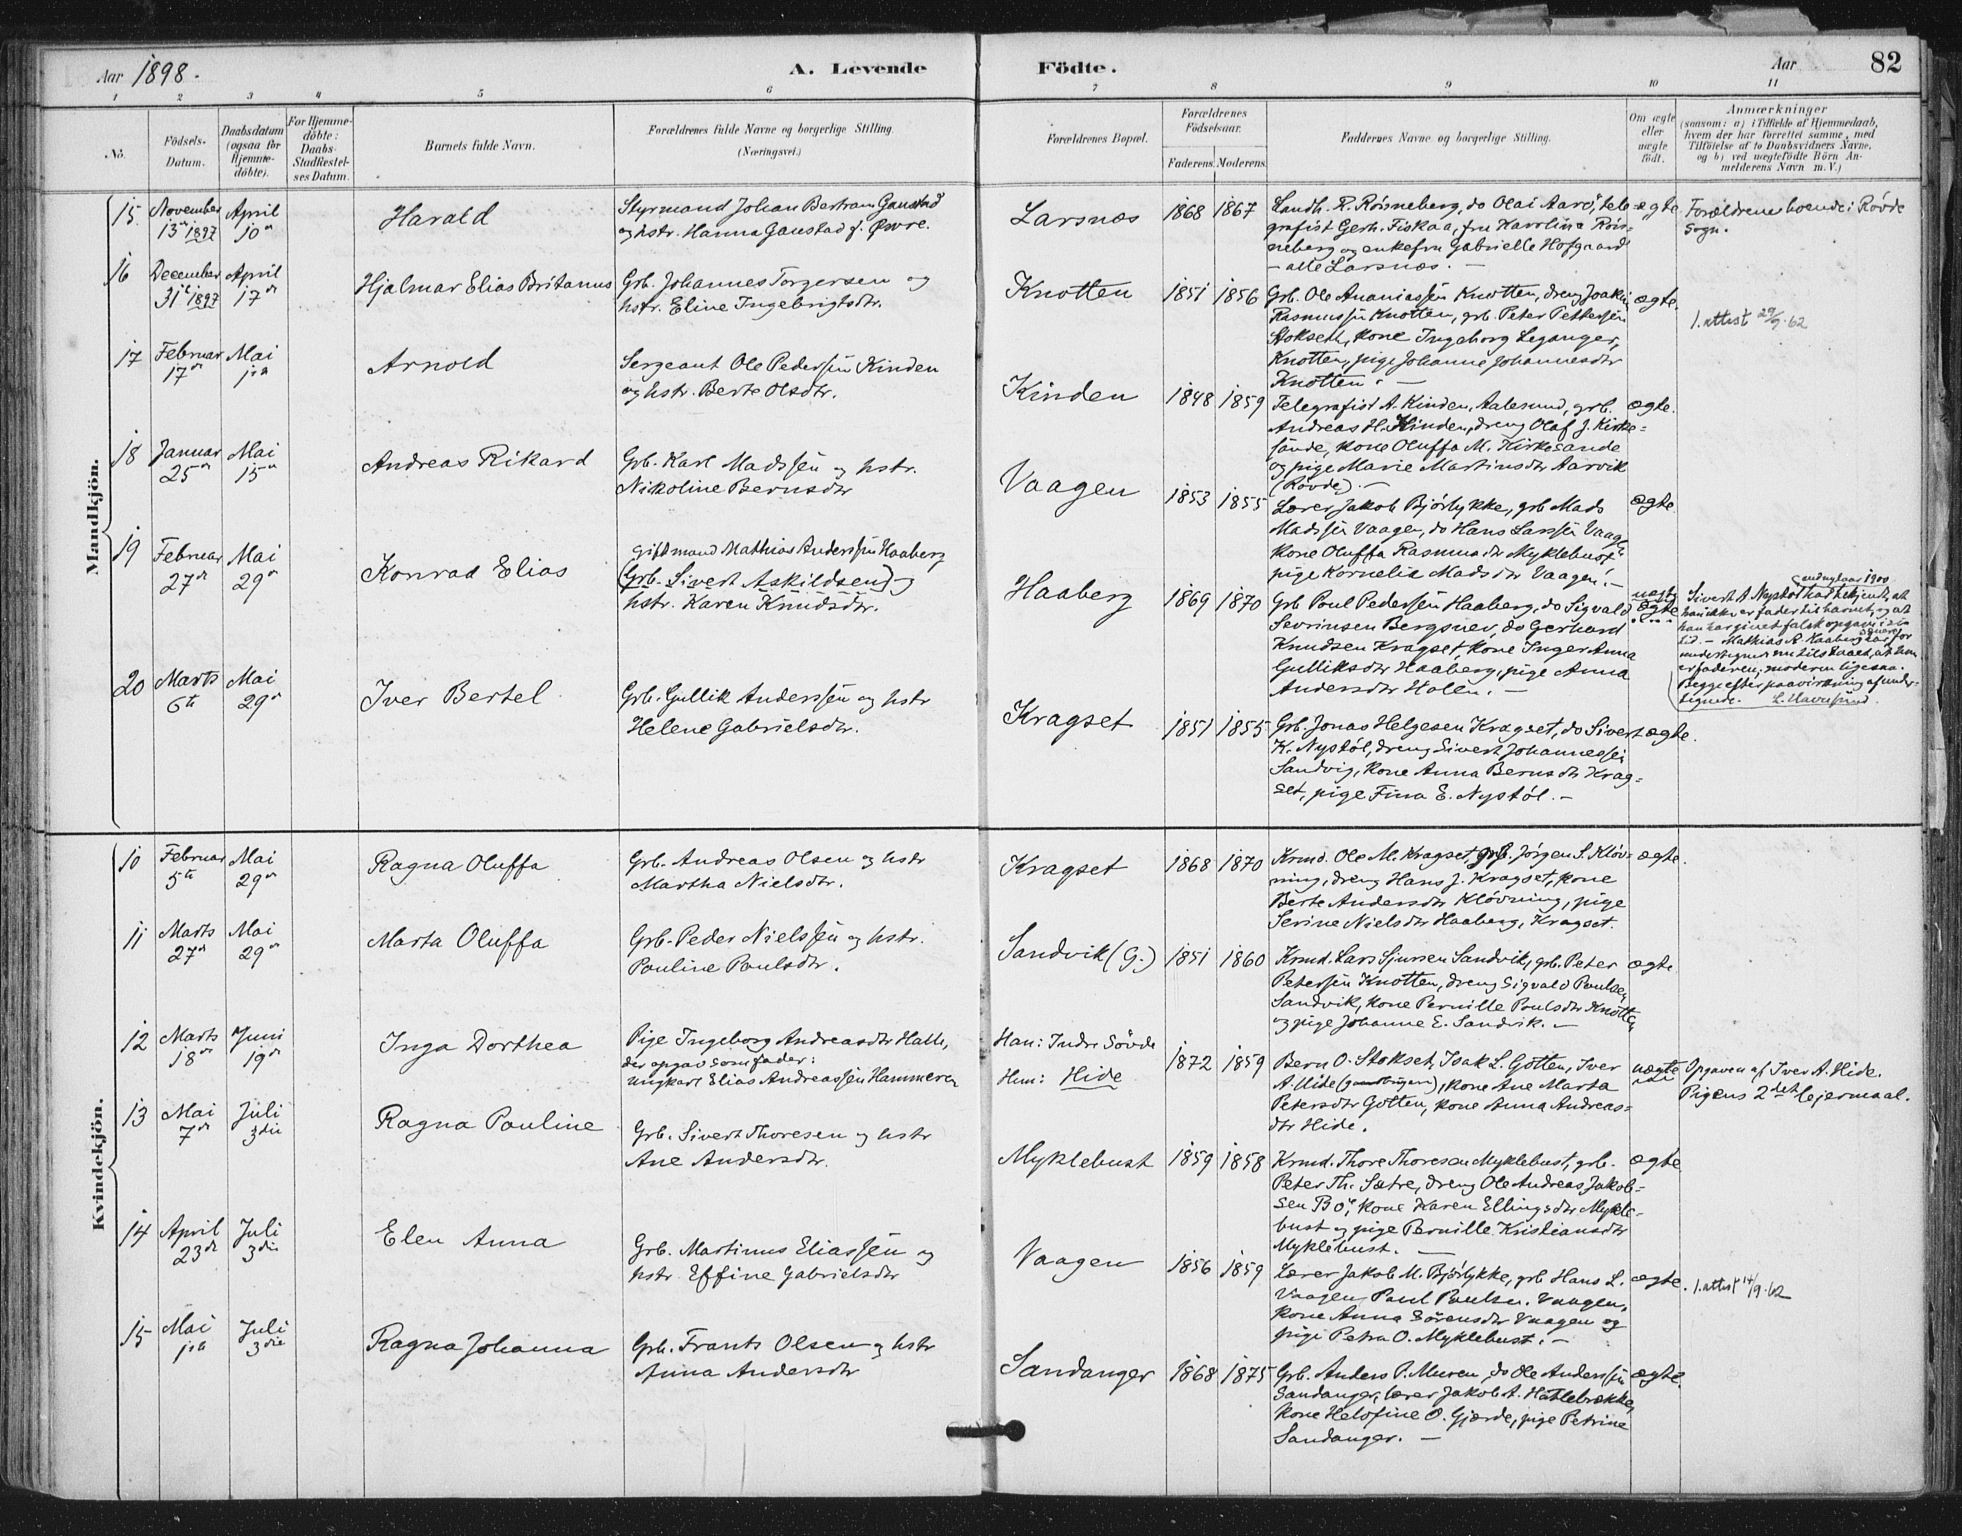 Aar 1898.
A. Levende
Födte.
Aar
82
1 2 3 4 5 6 7 8 9 10 11
No.
Födsels-
Datum.
Daabsdatum
(ogsaa for
Hjemme-
döbte).
For Hjemme-
döbte:
Daabs-
Stadfæstel-
ses Datum.
Barnets fulde Navn.
Forældrenes fulde Navne og borgerlige Stilling.
(Næringsvei.)
Forældrenes Bopæl.
Forældrenes
Födselsaar.
Faderens. Moderens.
Faddernes Navne og borgerlige Stilling.
Om ægte
eller
uægte
födt.
Anmærkninger
(saasom: a) i Tilfælde af Hjemmedaab,
hvem der har forrettet samme, med
Tilföielse af to Daabsvidners Navne,
og b) ved uægtefödte Börn An-
melderens Navn m. V.)
Mandkjön.
15. November
13de 1897
April
10de
Harald
Styrmand Johan Bertram Ganstad
og hstr. Hanna Ganstad f. Øvre.
Larsnæs
1868 1867
Landh. R. Röisneberg, do Olai Aarö, tele
grafist Gerh. Fiskaa, fru Karoline Röis-
neberg og enkefru Gabrielle Hofgaard
– alle Larsnæs. –
ægte
Forældrene boende i Rövde
Sogn.
16 December
31te 1897
April
17de
Hjalmar Elias Britanus
Grb. Johannes Torgersen og
hstr. Eline Ingebrigtsdtr.
Knotten
1851 1856
Grb. Ole Ananiassen Knotten, dreng Joakim
Rasmussen Knotten, grb. Peter Pettersen
Stokseth, kone Ingeborg Leganger,
Knotten, pige Johanne Johannesdtr
Knotten. –
ægte.
1. attest 29/9-62
17 Februar
17de
Mai
1ste
Arnold
Sergeant Ole Pederssen Kinden
og hstr. Berte Olsdtr.
Kinden
1848 1859
Telegrafist A. Kinden, Aalesund, grb.
Andreas H. Kinden, dreng Olaf J. Kirke-
sande, kone Oluffa M. Kirkesande
og pige Marie Martinsdtr Aarvik
(Rövde). –
ægte.
18 Januar
25de
Mai
15de
Andreas Rikard
Grb. Karl Madssen og hstr.
Nikoline Berns​dtr
Vaagen
1853 1855
Lærer Jakob Bjørlykke, grb Mads
Madssen Vaagen, do Hans Larssen Vaagen
kone Oluffa Rasmusdtr Myklebust
pige Kornelia Madsdtr Vaagen. –
ægte
19 Februar
27de
Mai
29de
Konrad Elias
giftmand Mathias Anderssen Haaberg
(Grb. Sivert Askildsen) og
hstr. Karen Knudsdtr.
Haaberg
1869 1870
Grb Poul Pedersen Haaberg, do Sigvald
Sevrinsen Bergsnev, do Gerhard
Knudsen Kragset, kone Inger Anna
Gulliksdtr Haaberg, pige Anna
Andersdtr Holen. –
uægte
ægte
Sivert A. Nystöl har bekjendt, at
han ikke er fader til barnet, og at
han har givet falsk opgave i sin
tid. – Mathias A. Haaberg har for
undertegnede tilstaaet, at han
er faderen; moderen ligesaa.
Begge efter paavirkning af under-
tegnede.
20 Marts
6te
Mai
29de
Iver Bertel
Grb. Gullik Anderssen og hstr
Helene Gabrielsdtr.
Kragset
1851 1855
Grb. Jonas Helgesen Kragset, do Sivert
K. Nystöl, dreng Sivert Johannessen
Sandvig, kone Anna Bernsdtr Krag-
set, pige Fina E. Nystöl. –
ægte.
Kvindekjön.
10 Februar
5te
Mai
29de
Ragna Oluffa
Grb. Andreas Olsen og hstr
Martha Nielsdtr.
Kragset
1868 1870
Krmd. Ole M. Kragset, grb. Jørgen S. Kløv-
ning, dreng Hans J. Kragset, kone
Berte Andersdtr Klövning, pige
Serine Nielsdtr Haaberg, Kragset.
ægte.
11 Marts
27de
Mai
29de
Marta Oluffa
Grb. Peder Nielssen og hstr.
Pauline Poulsdtr.
Sandvik (G.)
1851 1860
Krmd. Lars Sjursen Sandvik, grb. Peter
Petersen Knotten, dreng Sigvald Poulsen
Sandvik, kone Pernille Poulsdtr Knotten
og pige Johanne E. Sandvik. –
ægte
12 Marts
18de
Juni
19de
Inga Dorthea
Pige Ingeborg Andreasdtr Hatle,
der opgav som fader:
ungkarl Elias Andreassen Hammeren
Han: Indre Sövde
Hun: Hide
1872 1859
Bern O. Stokset, Isak L. Gotten, Iver
A. Hide, kone Ane Marta
Petersdtr Gotten, kone Anna Andreas-
dtr Hide.
uægte
Opgaven af Iver A. Hide.
Pigens 2det lejermaal.
13 Mai
7de
Juli
3die
Ragna Pauline
Grb. Sivert Thoresen og hstr
Ane Andersdtr.
Myklebust
1859 1858
Krmd. Thore Thoresen Myklebust, grb.
Peter Th. Sætre, dreng Ole Andreas Jakob-
sen Bö, kone Karen Ellingsdtr Mykle-
bust og pige Pernille Kristiansdtr
Myklebust. –
ægte
14 April
23de
Juli
3die
Elen Anna
Grb. Martinus Eliassen og
hstr. Effine Gabrielsdtr
Vaagen
1856 1859
Lærer Jakob M. Bjørlykke, grb Hans L.
Vaagen, Paul Paulsen Vaagen,
kone Anna Sörensdtr Vaagen og
pige Petra O. Myklebust. –
ægte.
1. attest 14/9-62
15 Mai
1ste
Juli
3die
Ragna Johanna
Grb. Frants Olsen og hstr
Anna Andersdtr
Sandanger
1868 1875
Grb. Anders P. Muren, do Ole Anderssen
Sandanger, lærer Jakob A. Hatlebrække,
kone Helofine O. Gjærde, pige Petrine
Sandanger. –
ægte.